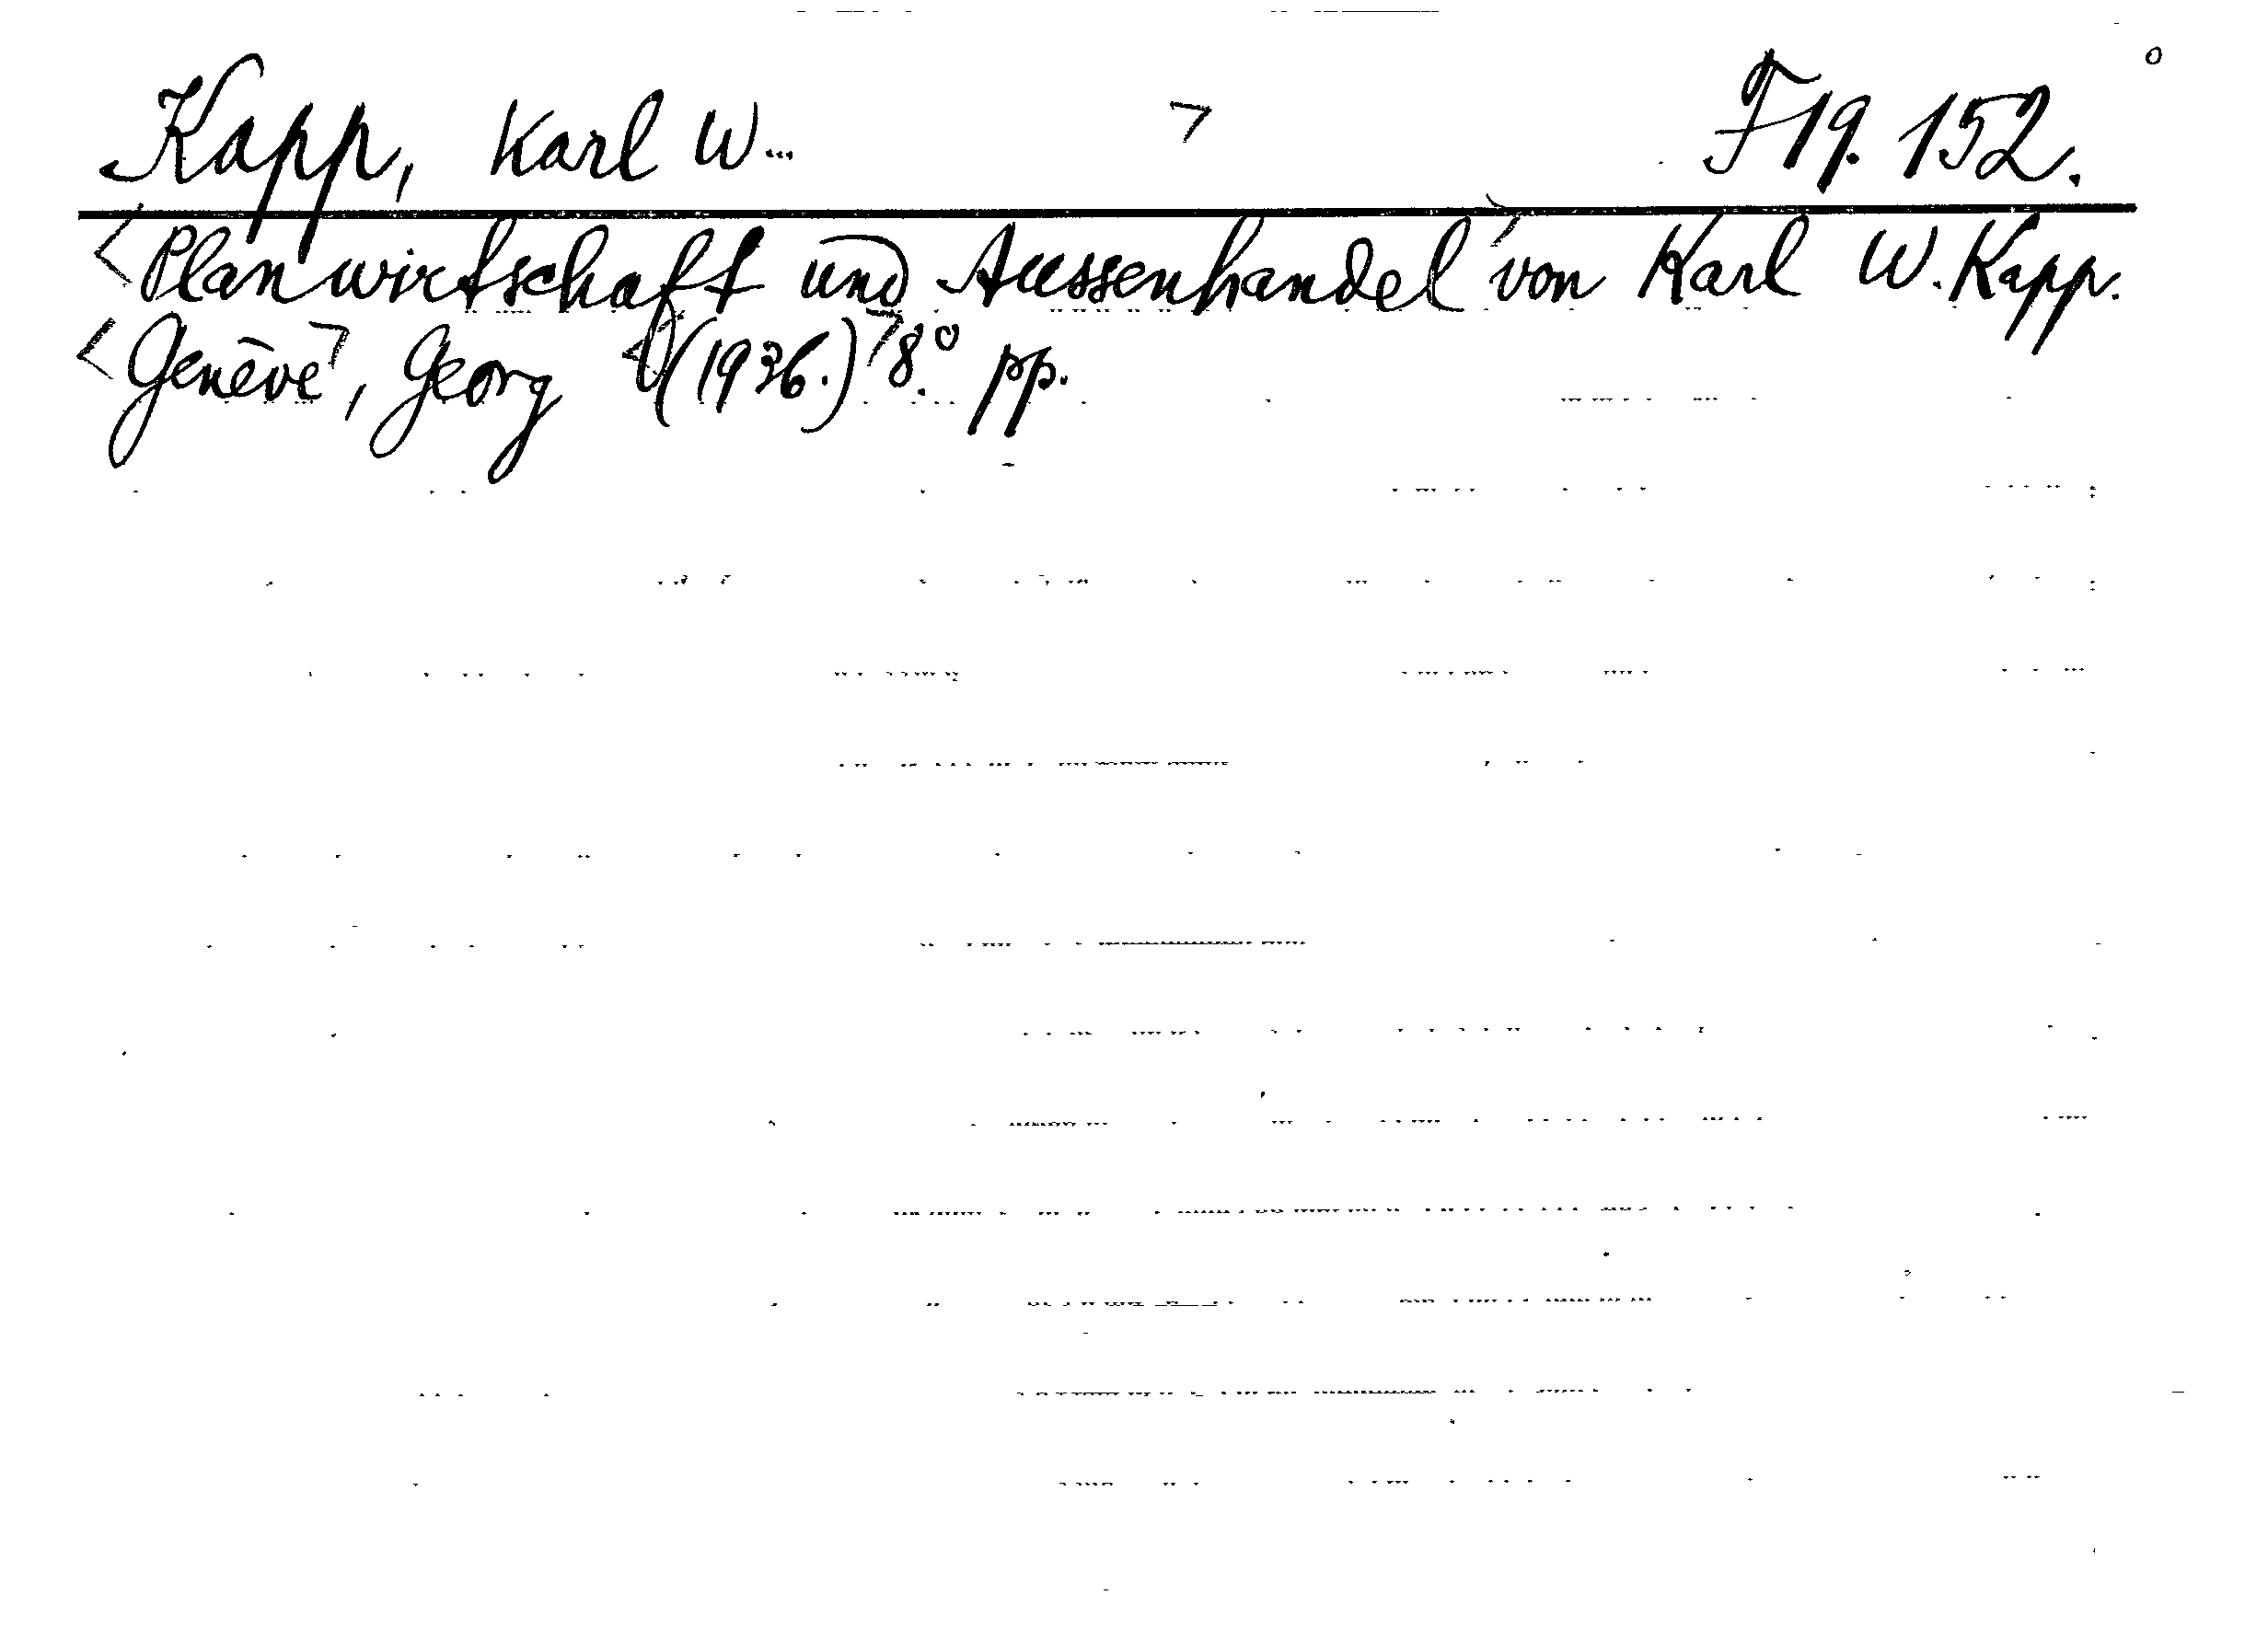 Kapp, Karl W... ﹁ F 19. 152.
<Planwirtschaft und Aussenhandel> von Karl W. Kapp.
<Genève>, Georg <(1936.)> 8.° pp.